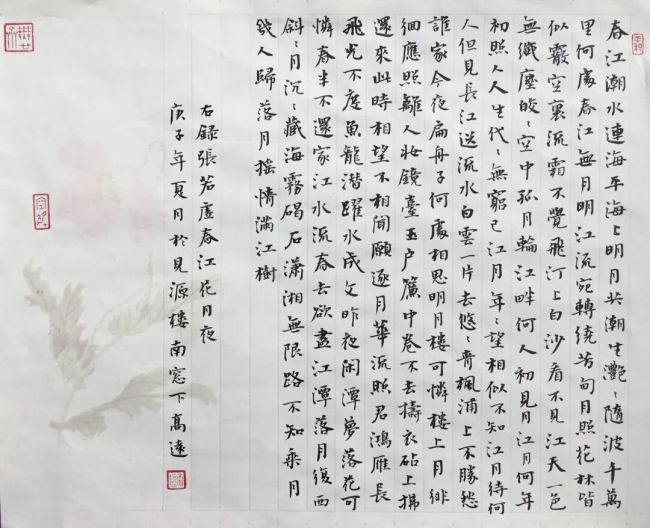 春江潮水連海平海上明月共潮生灩〻隨波千萬
里何處春江無月明江流宛轉繞芳甸月照花林皆
似霰空裏流霜不覺飛汀上白沙看不見江天一色
無纖塵皎〻空中孤月輪江畔何人初見月江月何年
初照人人生代〻無窮已江月年〻望相似不知江月待何
人但見長江送流水白雲一片去悠〻青楓浦上不勝愁
誰家今夜扁舟子何處相思明月楼可憐楼上月徘
徊應照離人妝鏡臺玉户簾中卷不去擣衣砧上拂
還來此時相望不相聞願逐月華流照君鴻雁長
飛光不度魚龍潛躍水成文昨夜闲潭夢落花可
憐春半不還家江水流春去欲盡江潭落月復西
斜〻月沉〻藏海霧碣石瀟湘無限路不知乘月
幾人歸落月搖情滿江樹
右錄張若虛春江花月夜
庚子年夏月於見源楼南窓下高遠